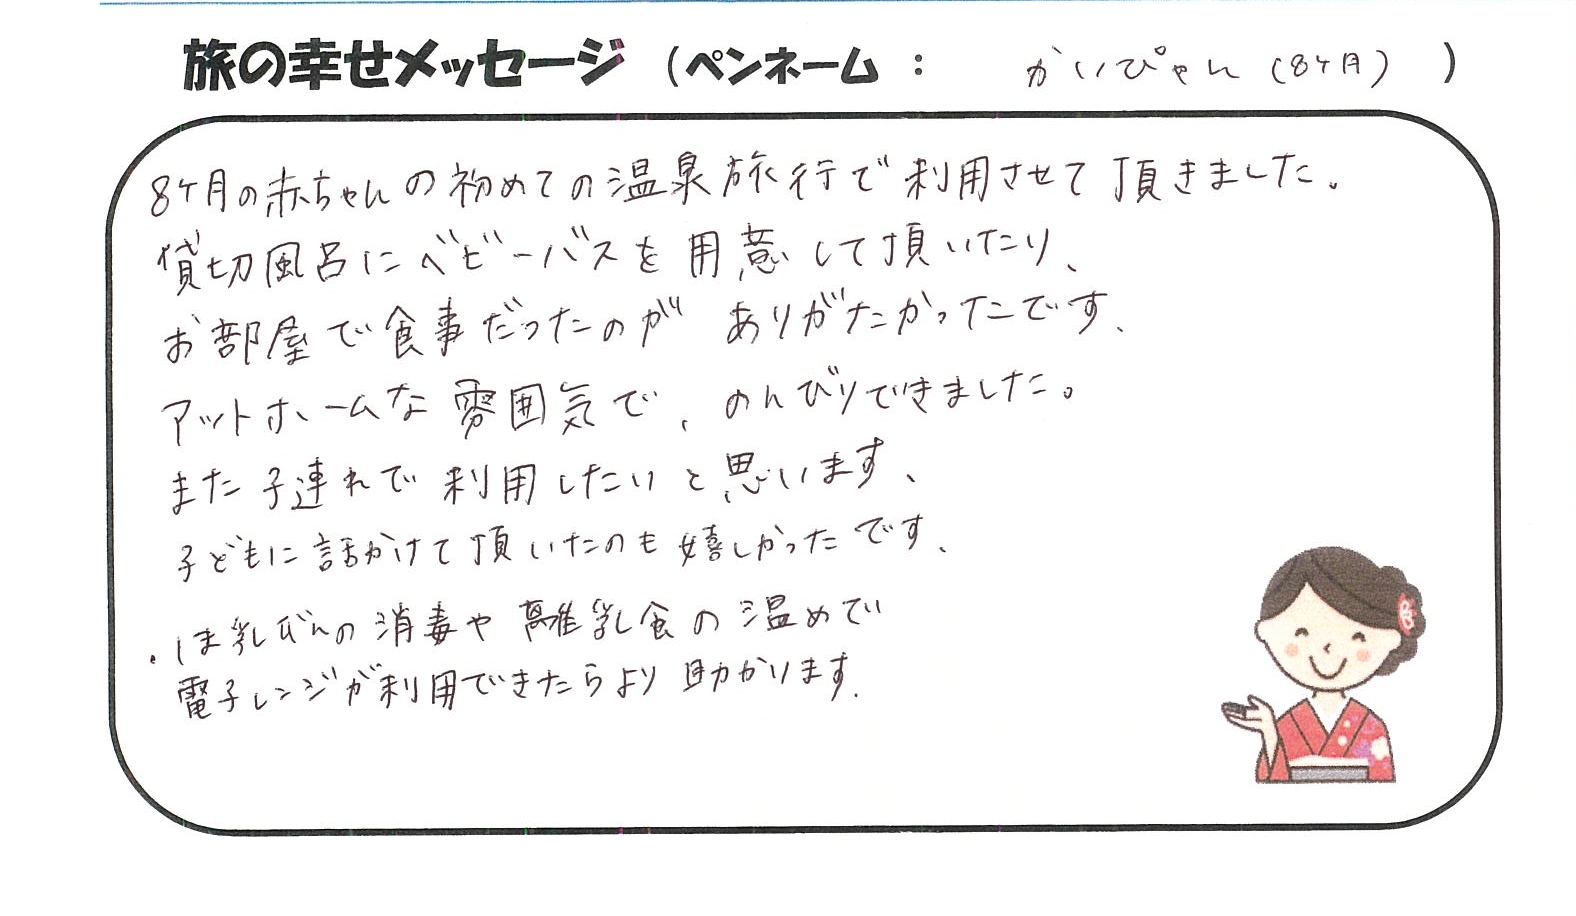 旅の幸せメッセージ（ペンネーム： かいぴゃん（8ヶ月） ）
8ヶ月の赤ちゃんの初めての温泉旅行で利用させて頂きました。
貸切風呂にベビーバスを用意して頂いたり、
お部屋で食事だったのが ありがたかったです、
アットホームな雰囲気で、のんびりできました。
また子連れで利用したいと思います、
子どもに話かけて頂いたのも嬉しかったです、
・ほ乳びんの消毒や離乳食の温めで
電子レンジが利用できたらより助かります.